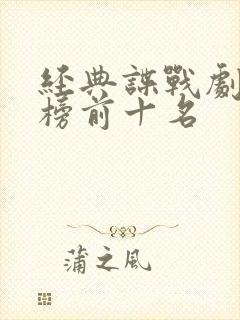 經典諜戰劇
榜前十名
蒲之風